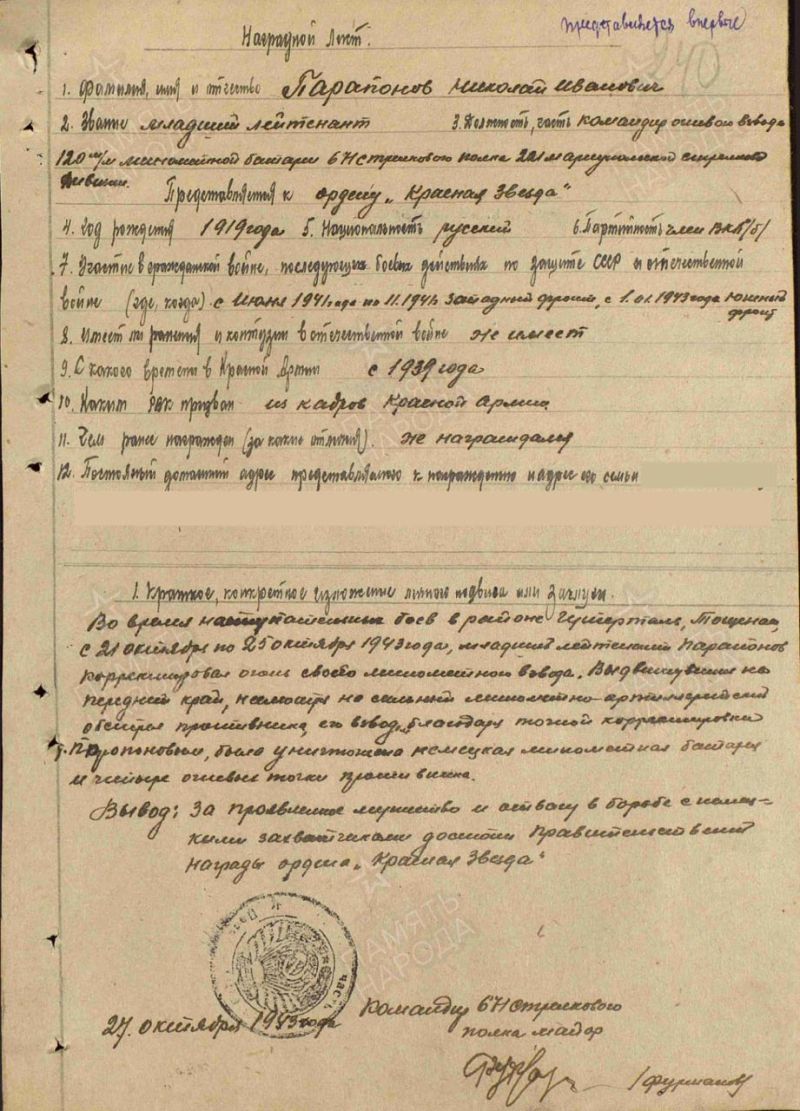 представляется впервые
Наградной лист.
240
1. Фамилия, имя и отчество Парапонов Николай Иванович
2. Звание младший лейтенант 3. Должность, часть командир огневого взвода
120 м/м минометной батареи 671 стрелкового полка 221 мариупольской стрелковой
дивизии.
Представляется к ордену „Красная Звезда"
4. Год рождения 1919 года 5. Национальность русский 6. Партийность член ВКП/б/
7. Участие в гражданской войне, последующих боевых действиях по защите СССР и отечественной
войне (где, когда) с июня 1941 года по 11.1941 западный фронт, с 1.01.1943 года Южный
фронт
8. Имеет ли ранения и контузии в отечественной войне не имеет
9. С какого времени в Красной Армии с 1939 года
10. Каким РВК призван из кадров Красной Армии
11. Чем ранее награжден (за какие отличия). не награждался
12. Постоянный домашний адрес представляемого к награждению и адрес его семьи
1. Краткое, конкретное изложение личного подвига или заслуги.
Во время наступательных боев в районе Гутерталь,
с 21 октября по 25 октября 1943 года, младший лейтенант Парапонов
корректировал огонь своего минометного взвода. Выдвинувшись на
передний край, несмотря на сильный минометно-артиллерийский
обстрел противника, его взвод, благодаря точной корректировки
т. Паропоновым, было уничтожено немецкая минометная батарея
и четыре огневых точки противника.
Вывод: За проявленное мужество и отвагу в борьбе с немец-
кими захватчиками достоин Правительственной
награды ордена „Красная Звезда"
часть
ПАМЯТЬ
НАРОДА
27. октября 1943 года
Командир 671 стрелкового
полка майор
/Фурманов/